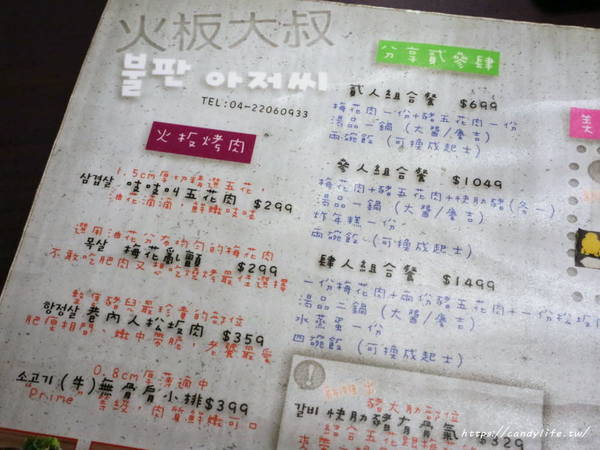 火板大叔
불판 아저씨
TEL:04-22060933
火板烤肉
1.5cm厚切精選五花,
삼겹살 哇哇叫五花肉 $299
油花滴滴 鮮嫩哇哇
選用油花分布均勻的梅花肉
목살 梅花亂顫 $299
不敢吃肥肉又想吃燒烤最佳選擇
整隻豬兒最珍貴的部位
항정살 巷內人松坂肉 $359
肥瘦相間 嫩中帶脆 老饕最愛
0.8cm厚薄適中
소고기 (牛)無骨肩小排$399
"Prime" 等級,肉質鮮嫩可口
分享貳參肆
貳人組合餐 $699
梅花肉一份+豬五花肉一份
湯品一鍋 (大醬/唐吉)
兩碗飯 (可換成起士)
參人組合餐 $1049
梅花肉+豬五花肉+快肋豬(各一)
湯品一鍋 (大醬/唐吉)
炸年糕一份
兩碗飯 (可換成起士)
肆人組合餐 $1499
一份梅花肉+兩份豬五花肉+一份松坂
湯品二鍋 (大醬/唐吉)
水蒸蛋一份
四碗飯 (可換成起士)
豬大肋部位
갈비 快肋豬大骨氣 $329
https://candylife.tw/